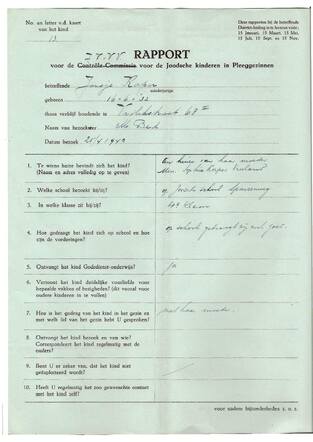 No. en letter v.d. kaart
van het kind
13
Deze rapporten bij de betreffende
Distributeur in te leveren vóór:
15 Januari, 15 Maart, 15 Mei,
15 Juli, 15 Sept. en 15 Nov.
RAPPORT
voor de Contrôle-Commissie voor de Joodsche kinderen in Pleeggezinnen
betreffende
minderjarige
geboren 16-6-'32
thans verblijf houdende in
Naam van bezoekster
Datum bezoek 25/4 1943
1. Te wiens huize bevindt zich het kind?
(Naam en adres volledig op te geven)
Ten huize van haar moeder
2. Welke school bezoekt hij/zij?
op Joodsche school
3. In welke klasse zit hij/zij?
4de klasse
4. Hoe gedraagt het kind zich op school en hoe
zijn de vorderingen?
op school gedraagt zij zich goed.
5. Ontvangt het kind Godsdienst-onderwijs?
ja
6. Vertoont het kind duidelijke voorliefde voor
bepaalde vakken of bezigheden? (dit vooral voor
oudere kinderen in te vullen)
7. Hoe is het gedrag van het kind in het gezin en
met welk lid van het gezin hebt U gesproken?
met haar moeder.
8. Ontvangt het kind bezoek en van wie?
Correspondeert het kind regelmatig met de
ouders?
9. Bent U er zeker van, dat het kind niet
geëxploiteerd wordt?
10. Heeft U regelmatig het zoo gewenschte contact
met het kind zelf?
voor nadere bijzonderheden z. o. z.